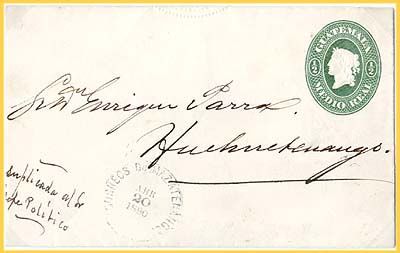 GUATEMALA
½ ½
MEDIO REAL
Enrique Parra.
Huehuetenango.
suplicada al Sr
Jefe Político
CORREOS DE MAZATENANGO
ABR
20
1880